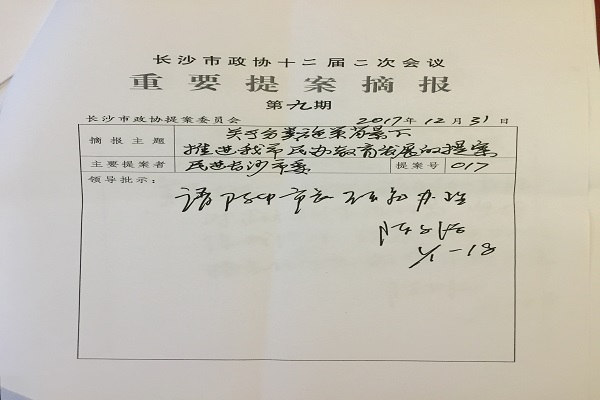 长沙市政协十二届二次会议
重要提案摘报
第九期
长沙市政协提案委员会 2017年12月31日
摘报主题 关于分类施策背景下
推进我市民办教育发展的提案
主要提案者 民进长沙市委 提案号 017
领导批示：
请 市长 办理
1/1-18